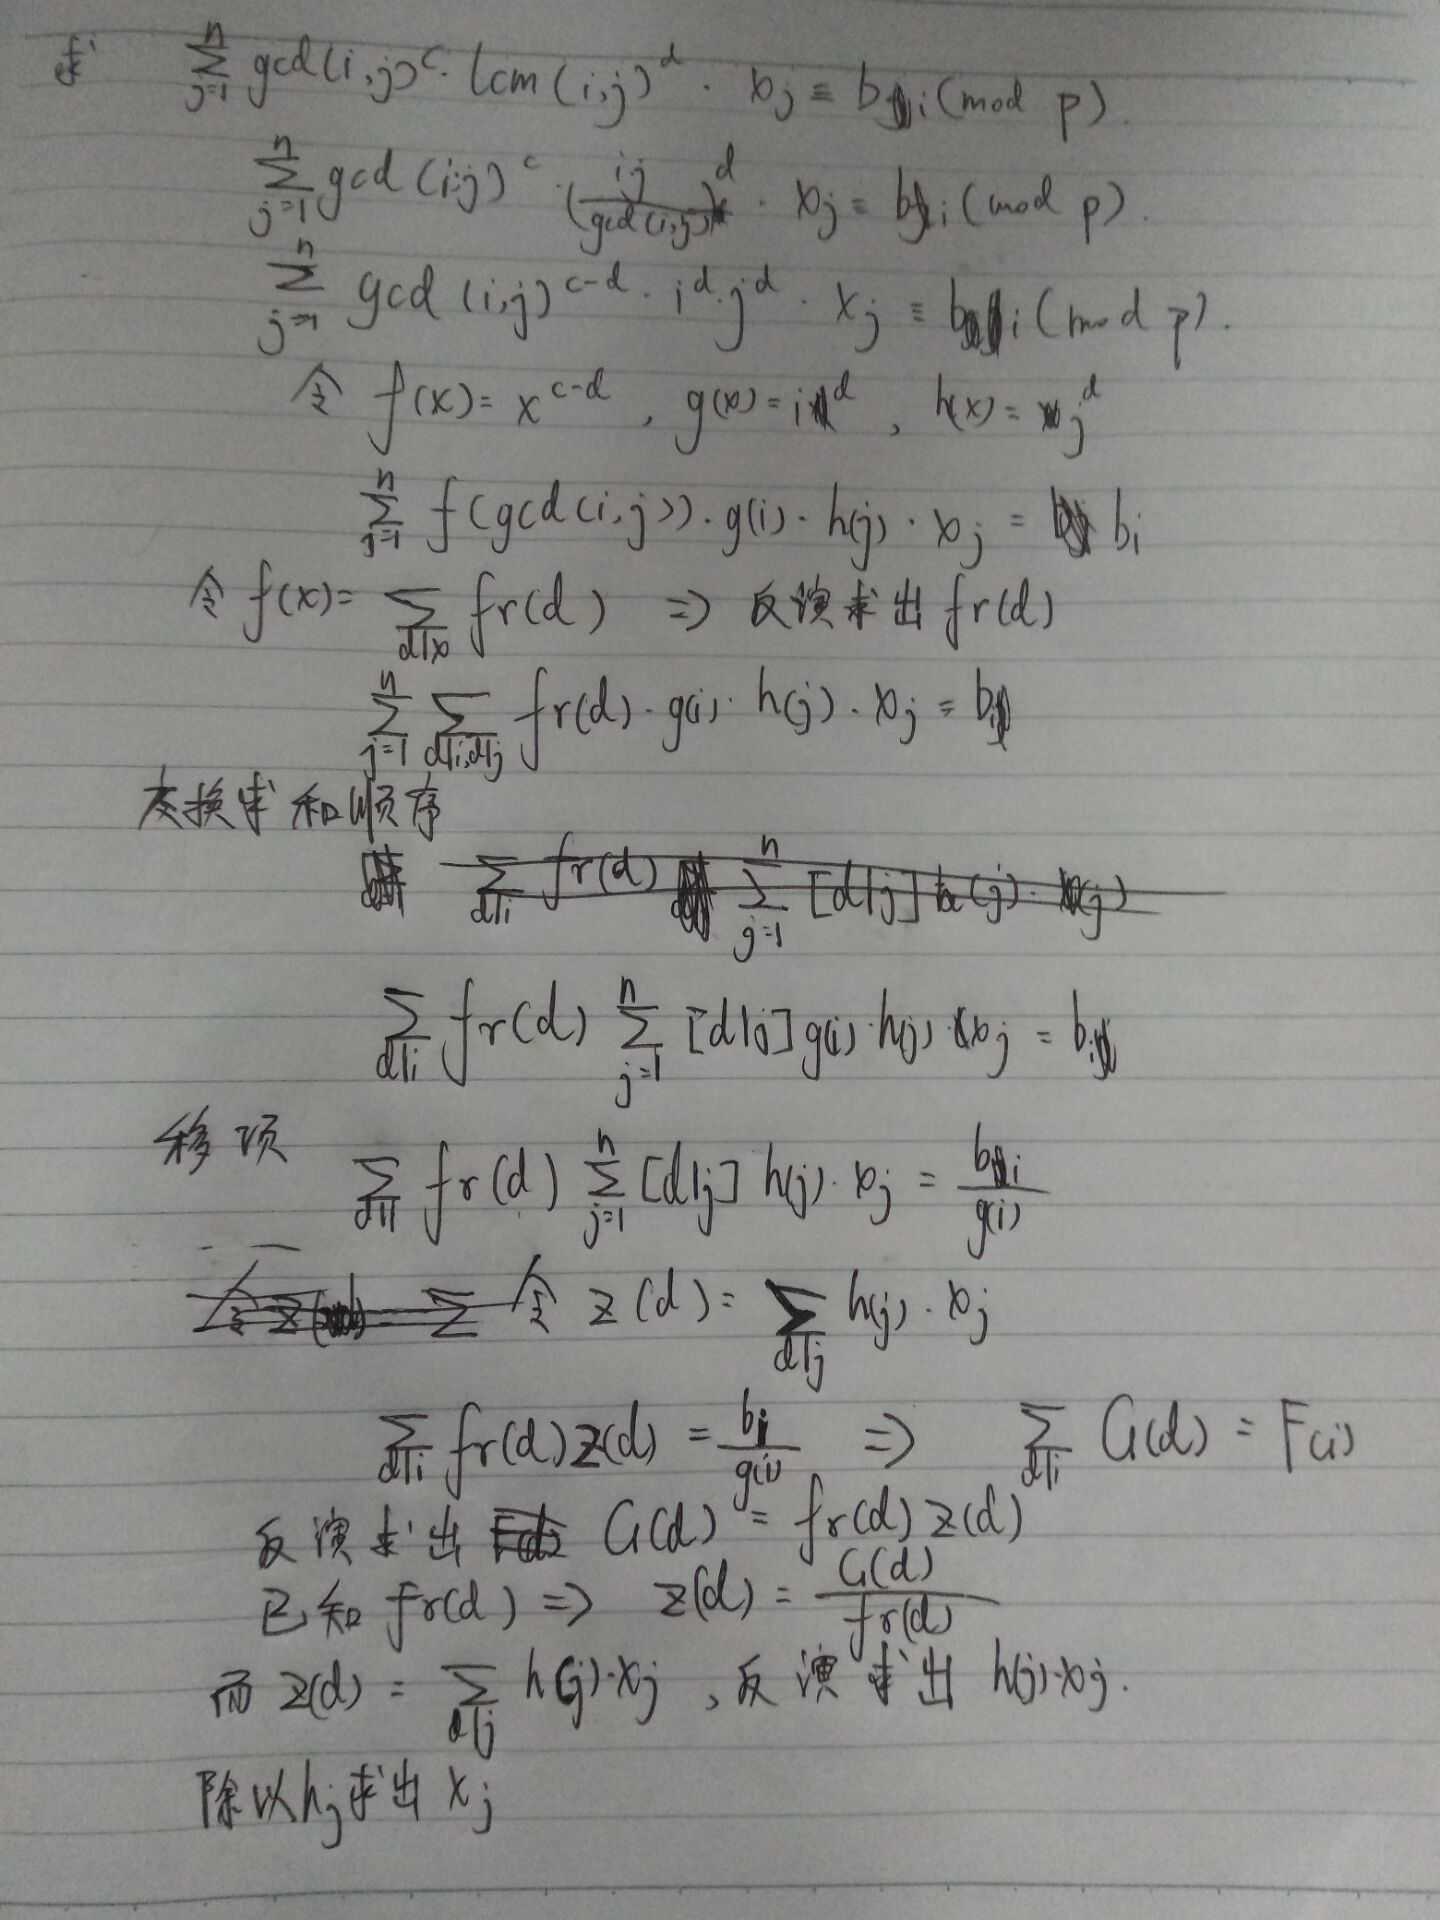 求 $\sum_{j=1}^{n} gcd(i,j)^{c} \cdot lcm(i,j)^{d} \cdot x_j \equiv b_i (mod\ p).$
$\sum_{j=1}^{n} gcd(i,j)^{c} \cdot (\frac{ij}{gcd(i,j)})^{d} \cdot x_j = b_i (mod\ p).$
$\sum_{j=1}^{n} gcd(i,j)^{c-d} \cdot i^{d} \cdot j^{d} \cdot x_j \equiv b_i (mod\ p).$
令 $f(x) = x^{c-d}, g(x) = i^{d}, h(x) = j^{d}$
$\sum_{j=1}^{n} f(gcd(i,j)) \cdot g(i) \cdot h(j) \cdot x_j = b_i$
令 $f(x) = \sum_{d|x} fr(d)$ ⇒ 反演求出 $fr(d)$
$\sum_{j=1}^{n} \sum_{d|i,d|j} fr(d) \cdot g(i) \cdot h(j) \cdot x_j = b_i$
交换求和顺序
$\sum_{d|i} fr(d) \sum_{j=1}^{n} [d|j] g(i) \cdot h(j) \cdot x_j = b_i$
移项 $\sum_{d|i} fr(d) \sum_{j=1}^{n} [d|j] h(j) \cdot x_j = \frac{b_i}{g(i)}$
令 $z(d) = \sum_{d|j} h(j) \cdot x_j$
$\sum_{d|i} fr(d) z(d) = \frac{b_i}{g(i)}$ ⇒ $\sum_{d|i} G(d) = F(i)$
反演求出 $G(d) = fr(d) z(d)$
已知 $fr(d)$ ⇒ $z(d) = \frac{G(d)}{fr(d)}$
而 $z(d) = \sum_{d|j} h(j) \cdot x_j$ , 反演求出 $h(j) \cdot x_j.$
除以 $h_j$ 求出 $x_j$